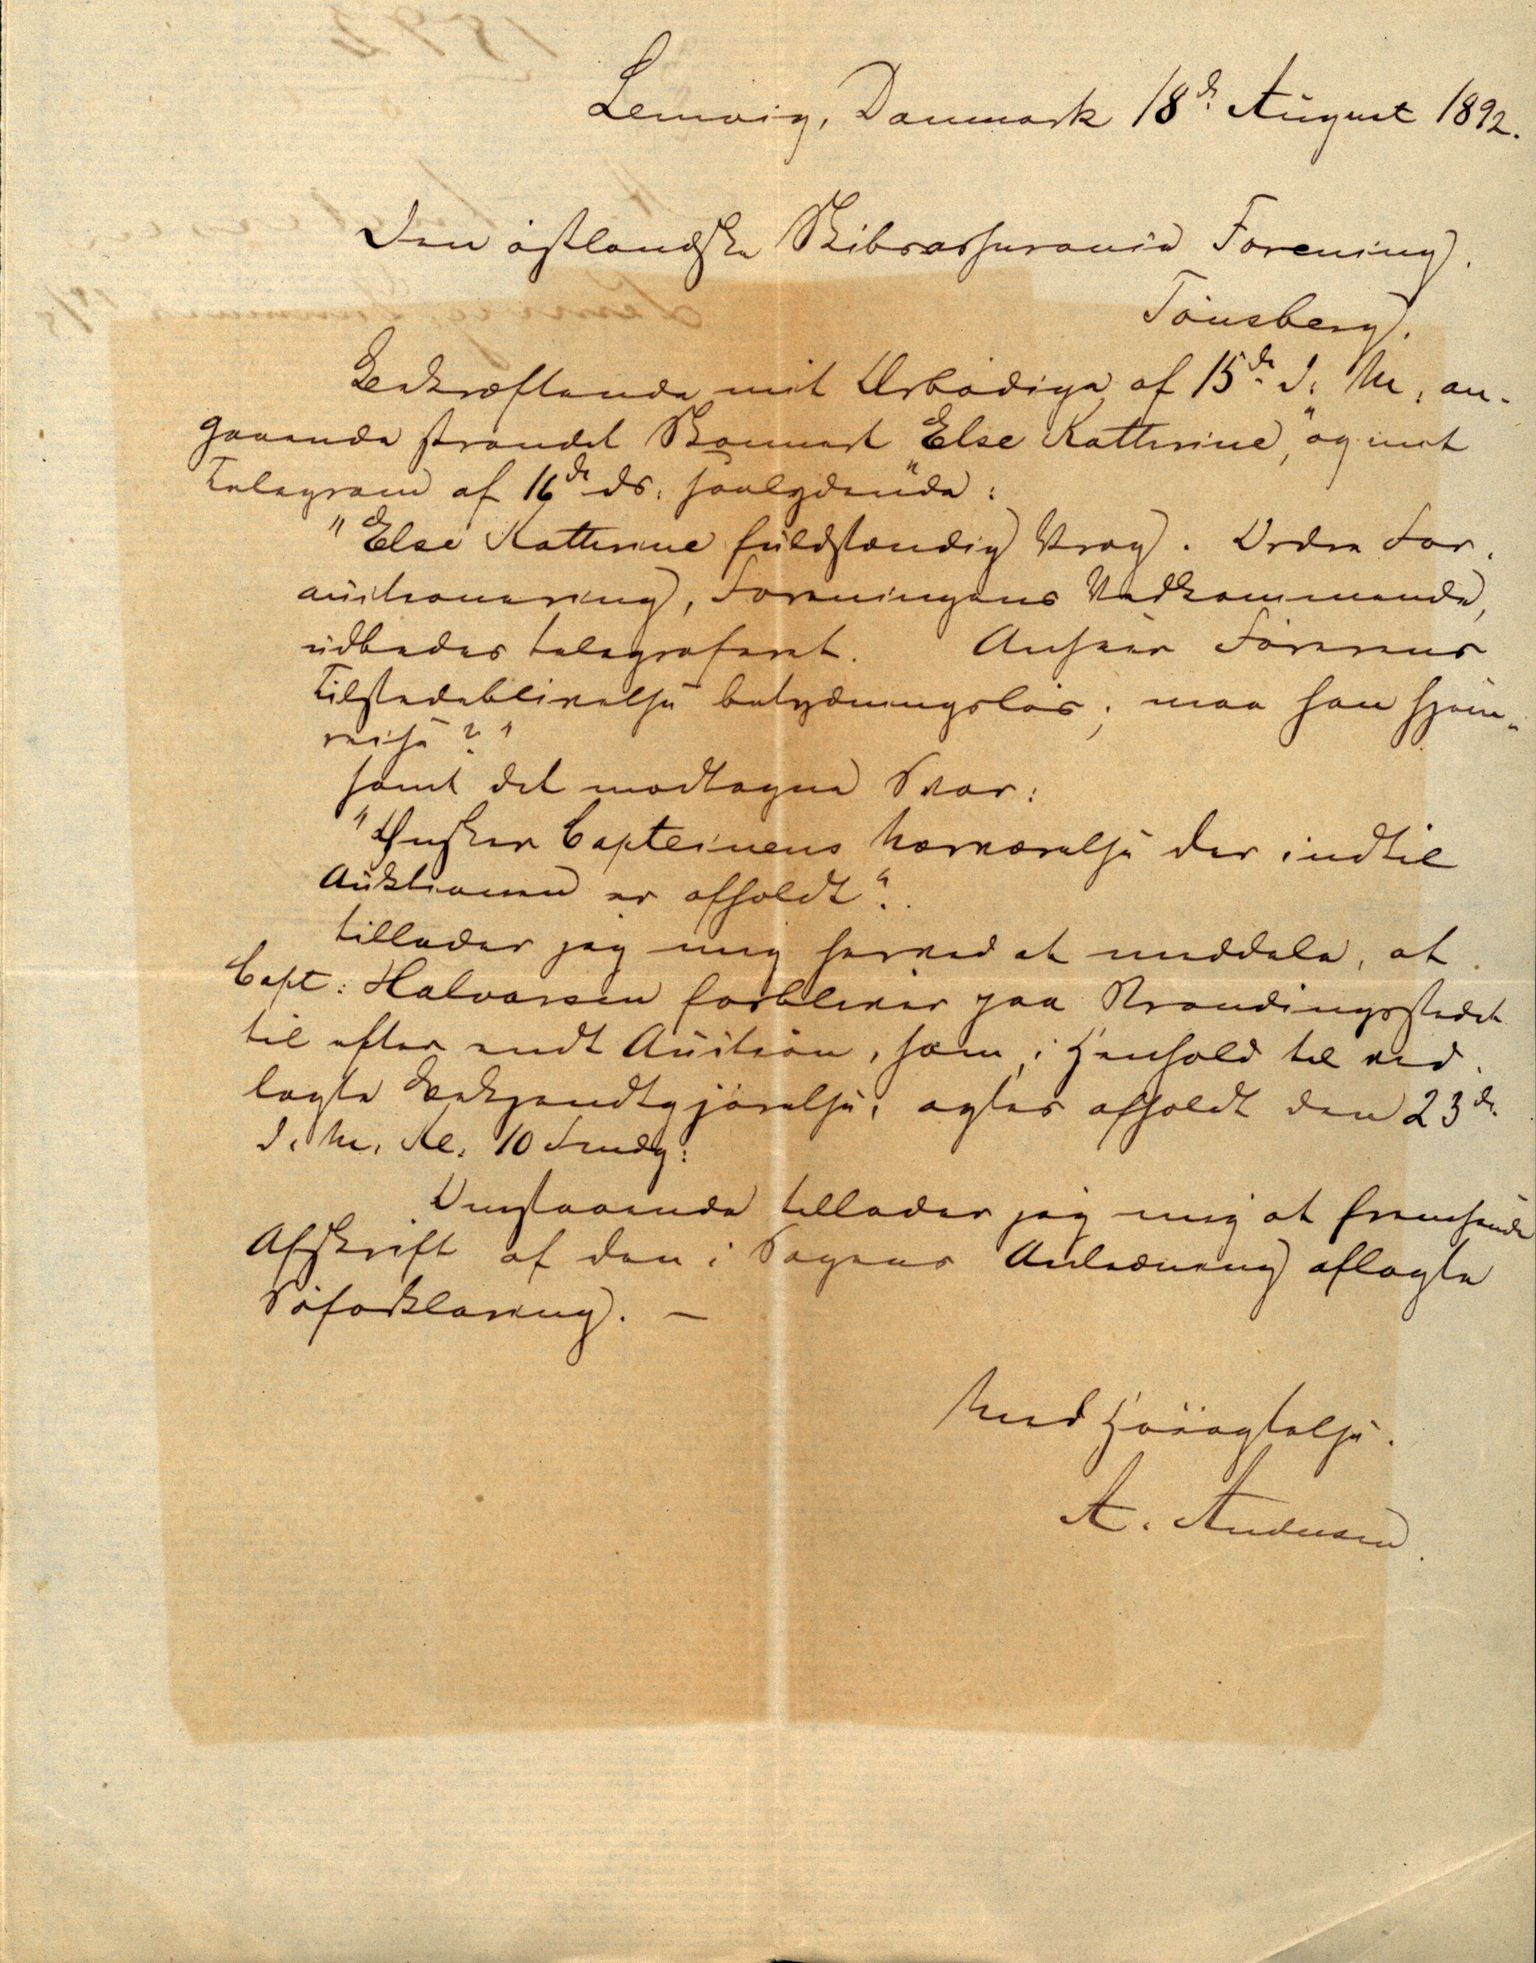 Lemvig, Danmark 18d. August 1892.
Den østlandske Skibsassurance Forening.
Tönsberg.
Bekræftende mit Ærbödige af 15de d. M. an-
gaaende strandet Skonnert "Else Kathrine", og mit
Telegram af 16de ds. saalydende:
"Else Kathrine fuldstændig Vrag. Ordre For-
auctionering, Foreningens Vedkommende,
udbedes telegraferet. Ansees Förerens
Tilstedeblivelse betydningslös, maa han hjem-
reise?"
samt det modtagne Svar:
"Önsker Capteinens Nærværelse der indtil
Auktionen er afholdt".
tillader jeg mig herved at meddele, at
Capt: Halvorsen forbliver paa Strandingsstedet
til efter endt Auction, som, i Henhold til ved-
lagte Bekjendtgjörelse, agtes afholdt den 23de
d. M. Kl. 10 Fmdg:
Omstaaende tillader jeg mig at fremsende
Afskrift af den i Sagens Anledning aflagte
Söforklaring. —
Med Höiagtelse.
A. Andersen